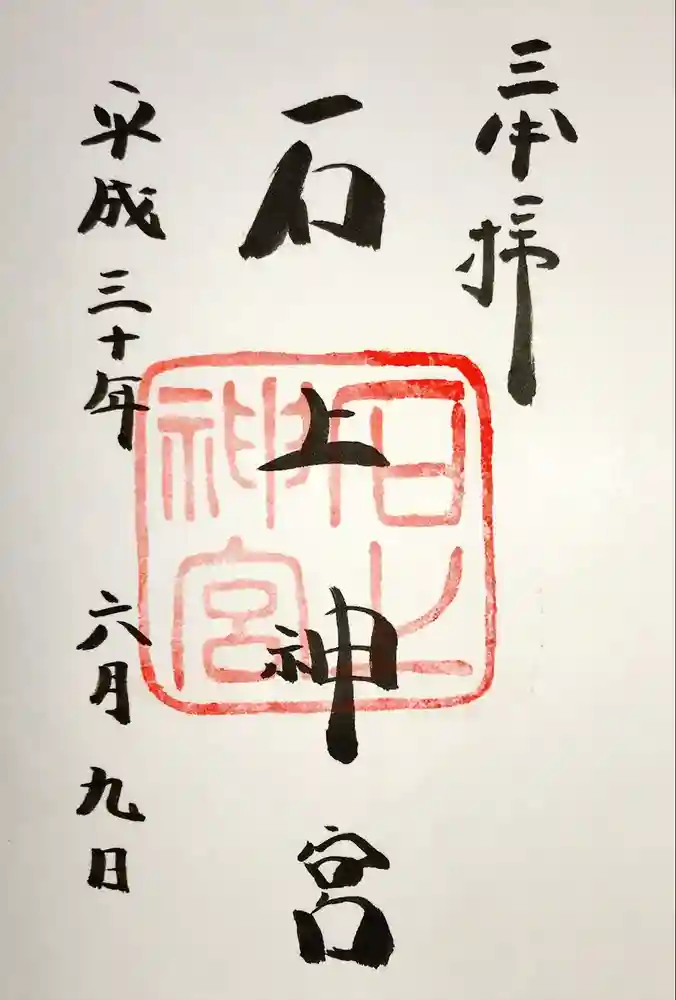 奉拝
石上神宮
平成三十年 六月九日
石上
神宮